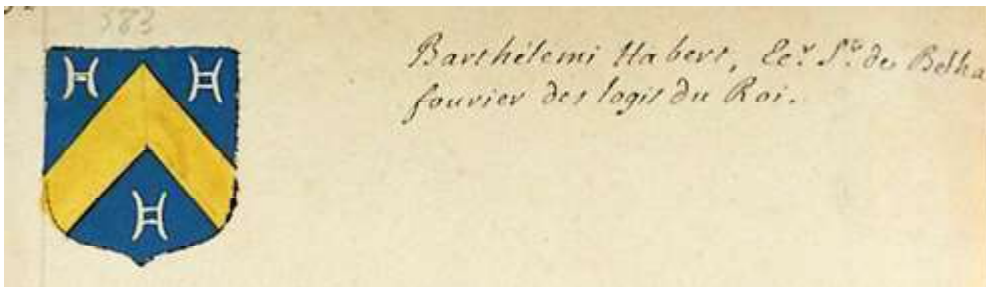 583
Barthélemi Habert, Ecr. Sr. des Belha
fourier des logis du Roi.